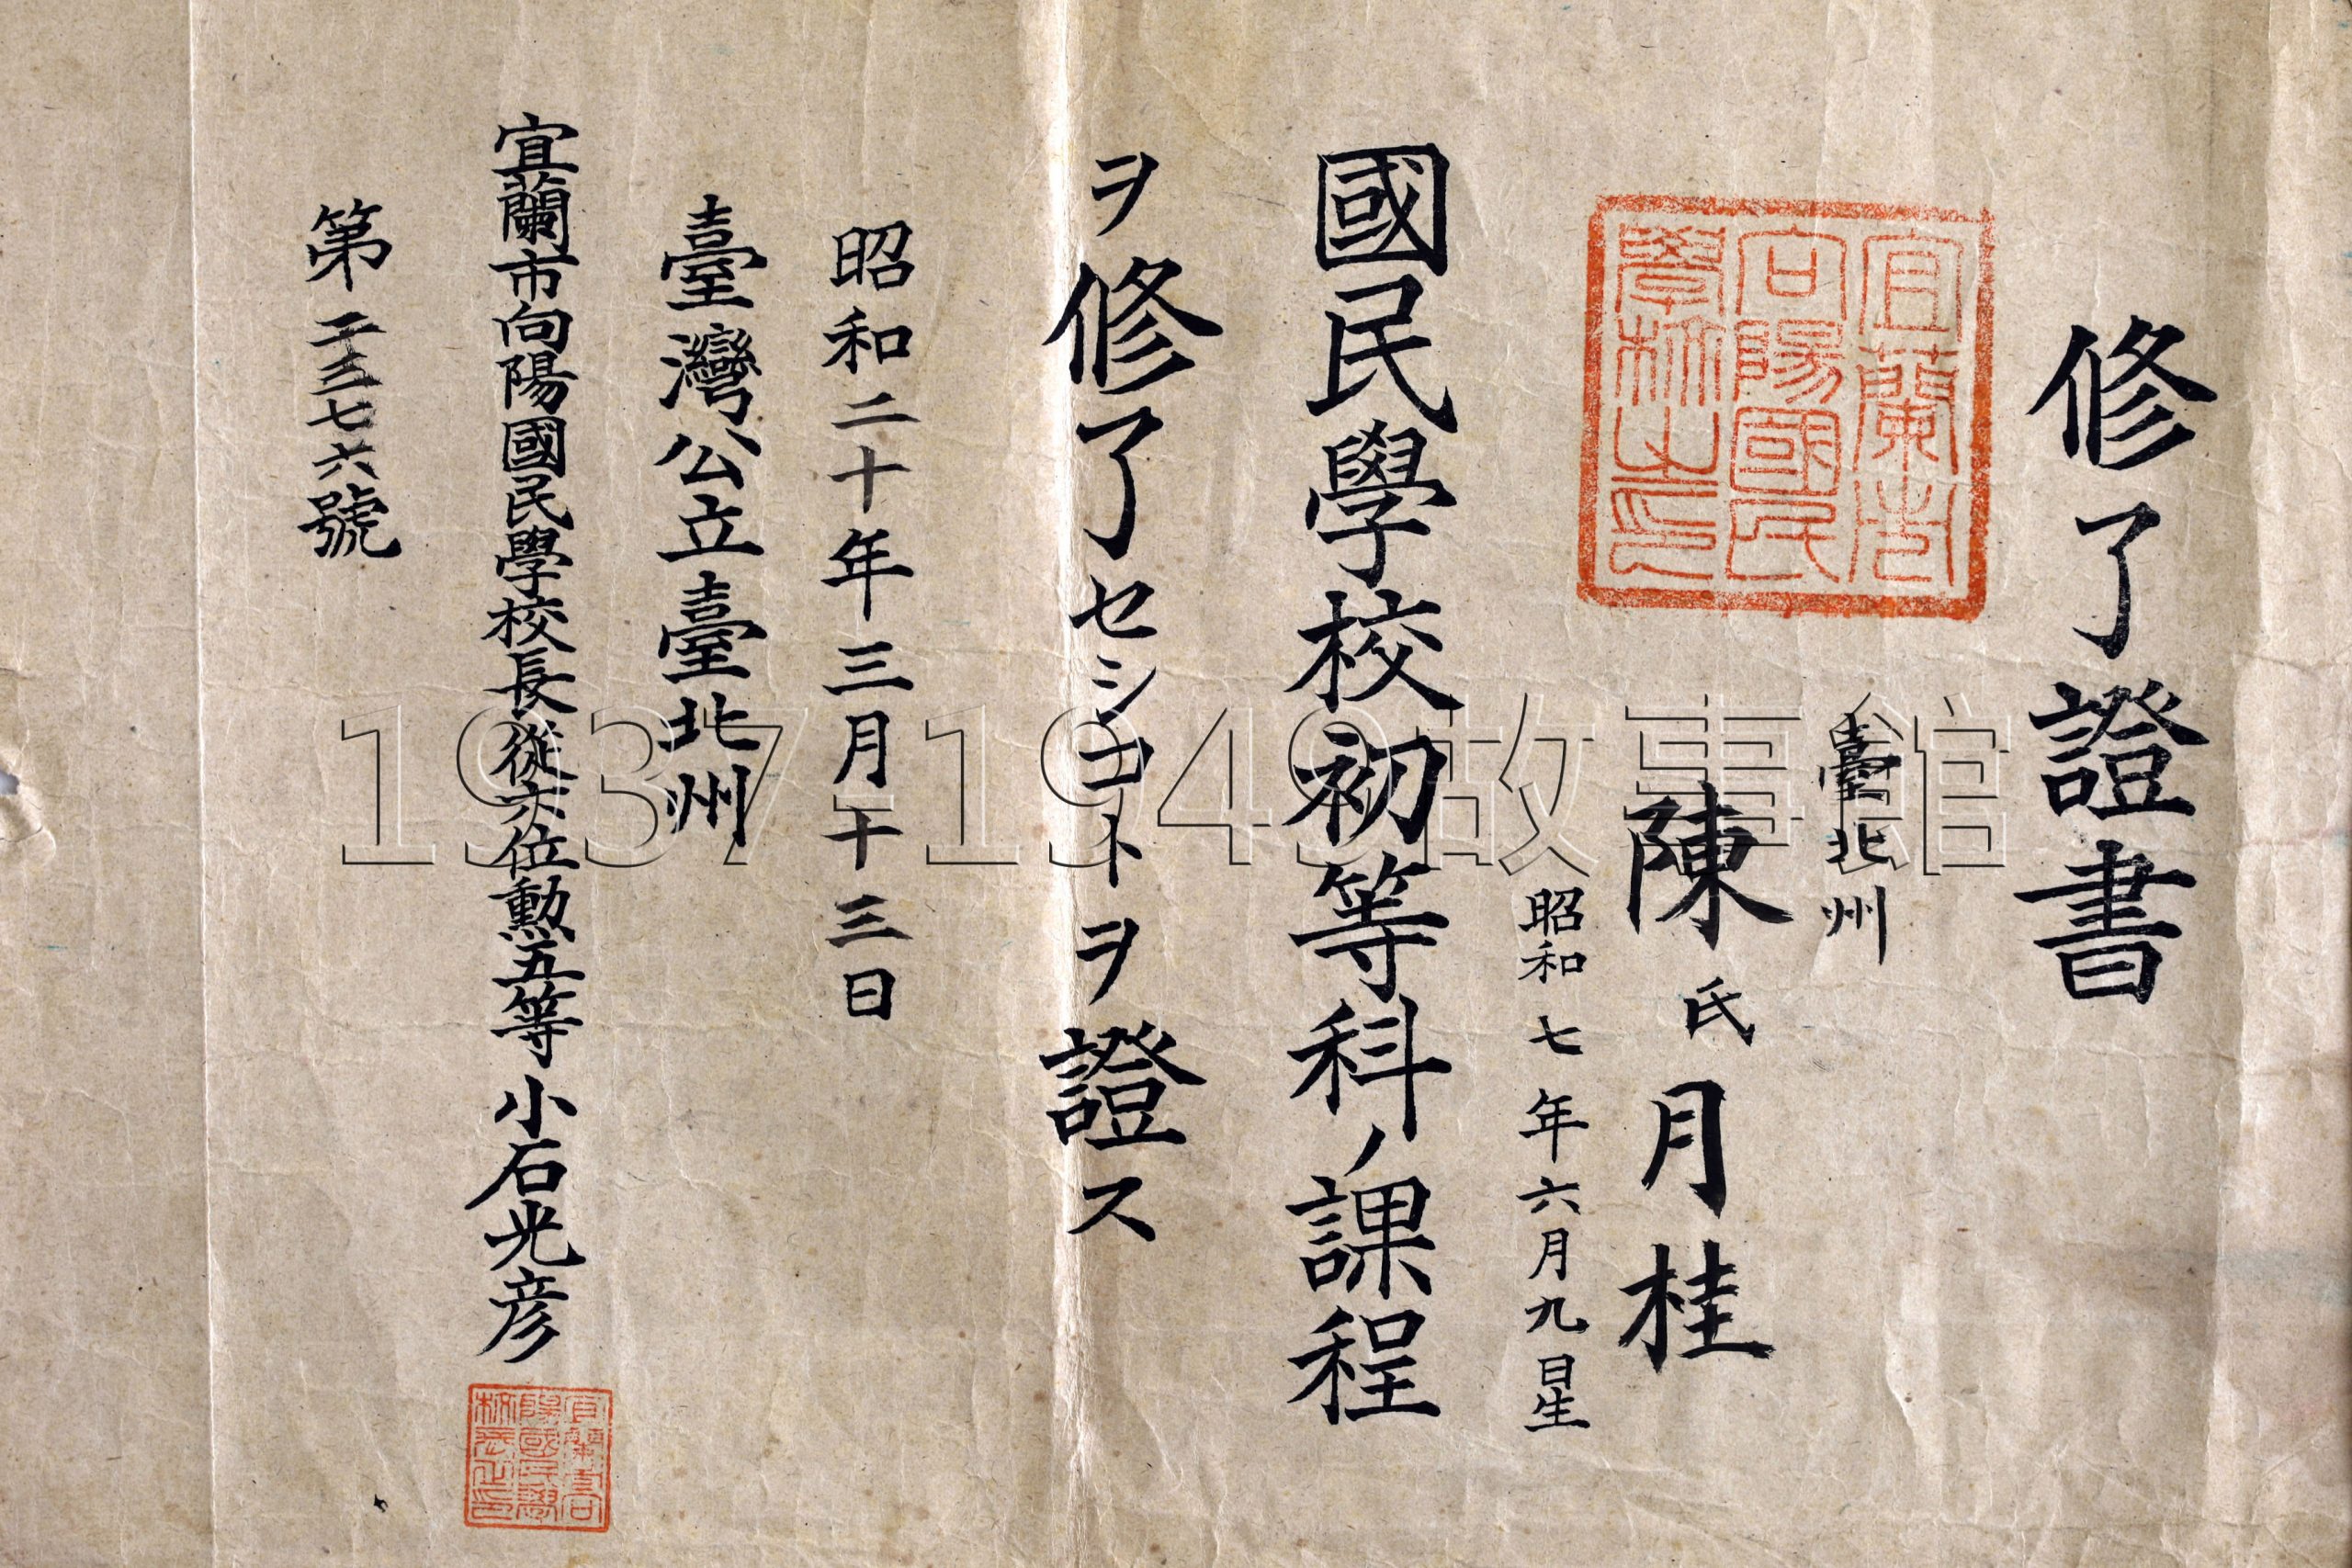 修了證書
宜蘭市
向陽國民
學校之印
臺北州
陳氏月桂
昭和七年六月九日生
國民學校初等科ノ課程
ヲ修了セシコトヲ證ス
昭和二十年三月十三日
臺灣公立臺北州
宜蘭市向陽國民學校長從六位勲五等小石光彦
宜蘭市向
陽國民學
校長之印
第二三七六號
1937-1949故事館